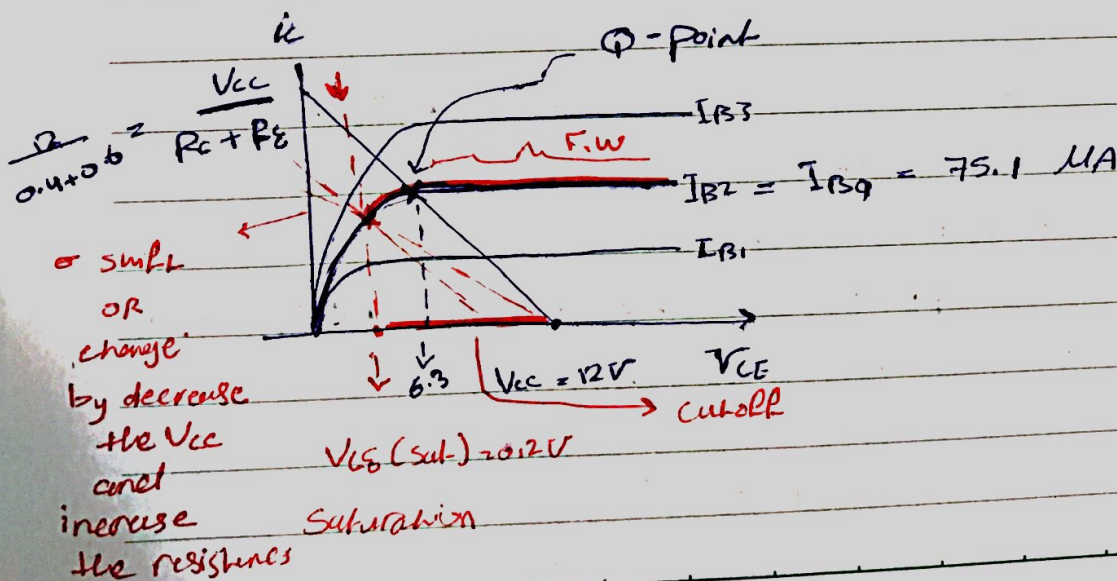 ic
Q-point
Vcc
Rc + RE
=
0.4+0.6
IB3
F.W
IB2 = IBQ = 75.1 MA
IB1
OR
change
by decrease
the Vcc
and
inerease
the resistences
6.3
Vcc = 12V
VCE
cutoff
VCE (sat) = 0.2V
Saturation